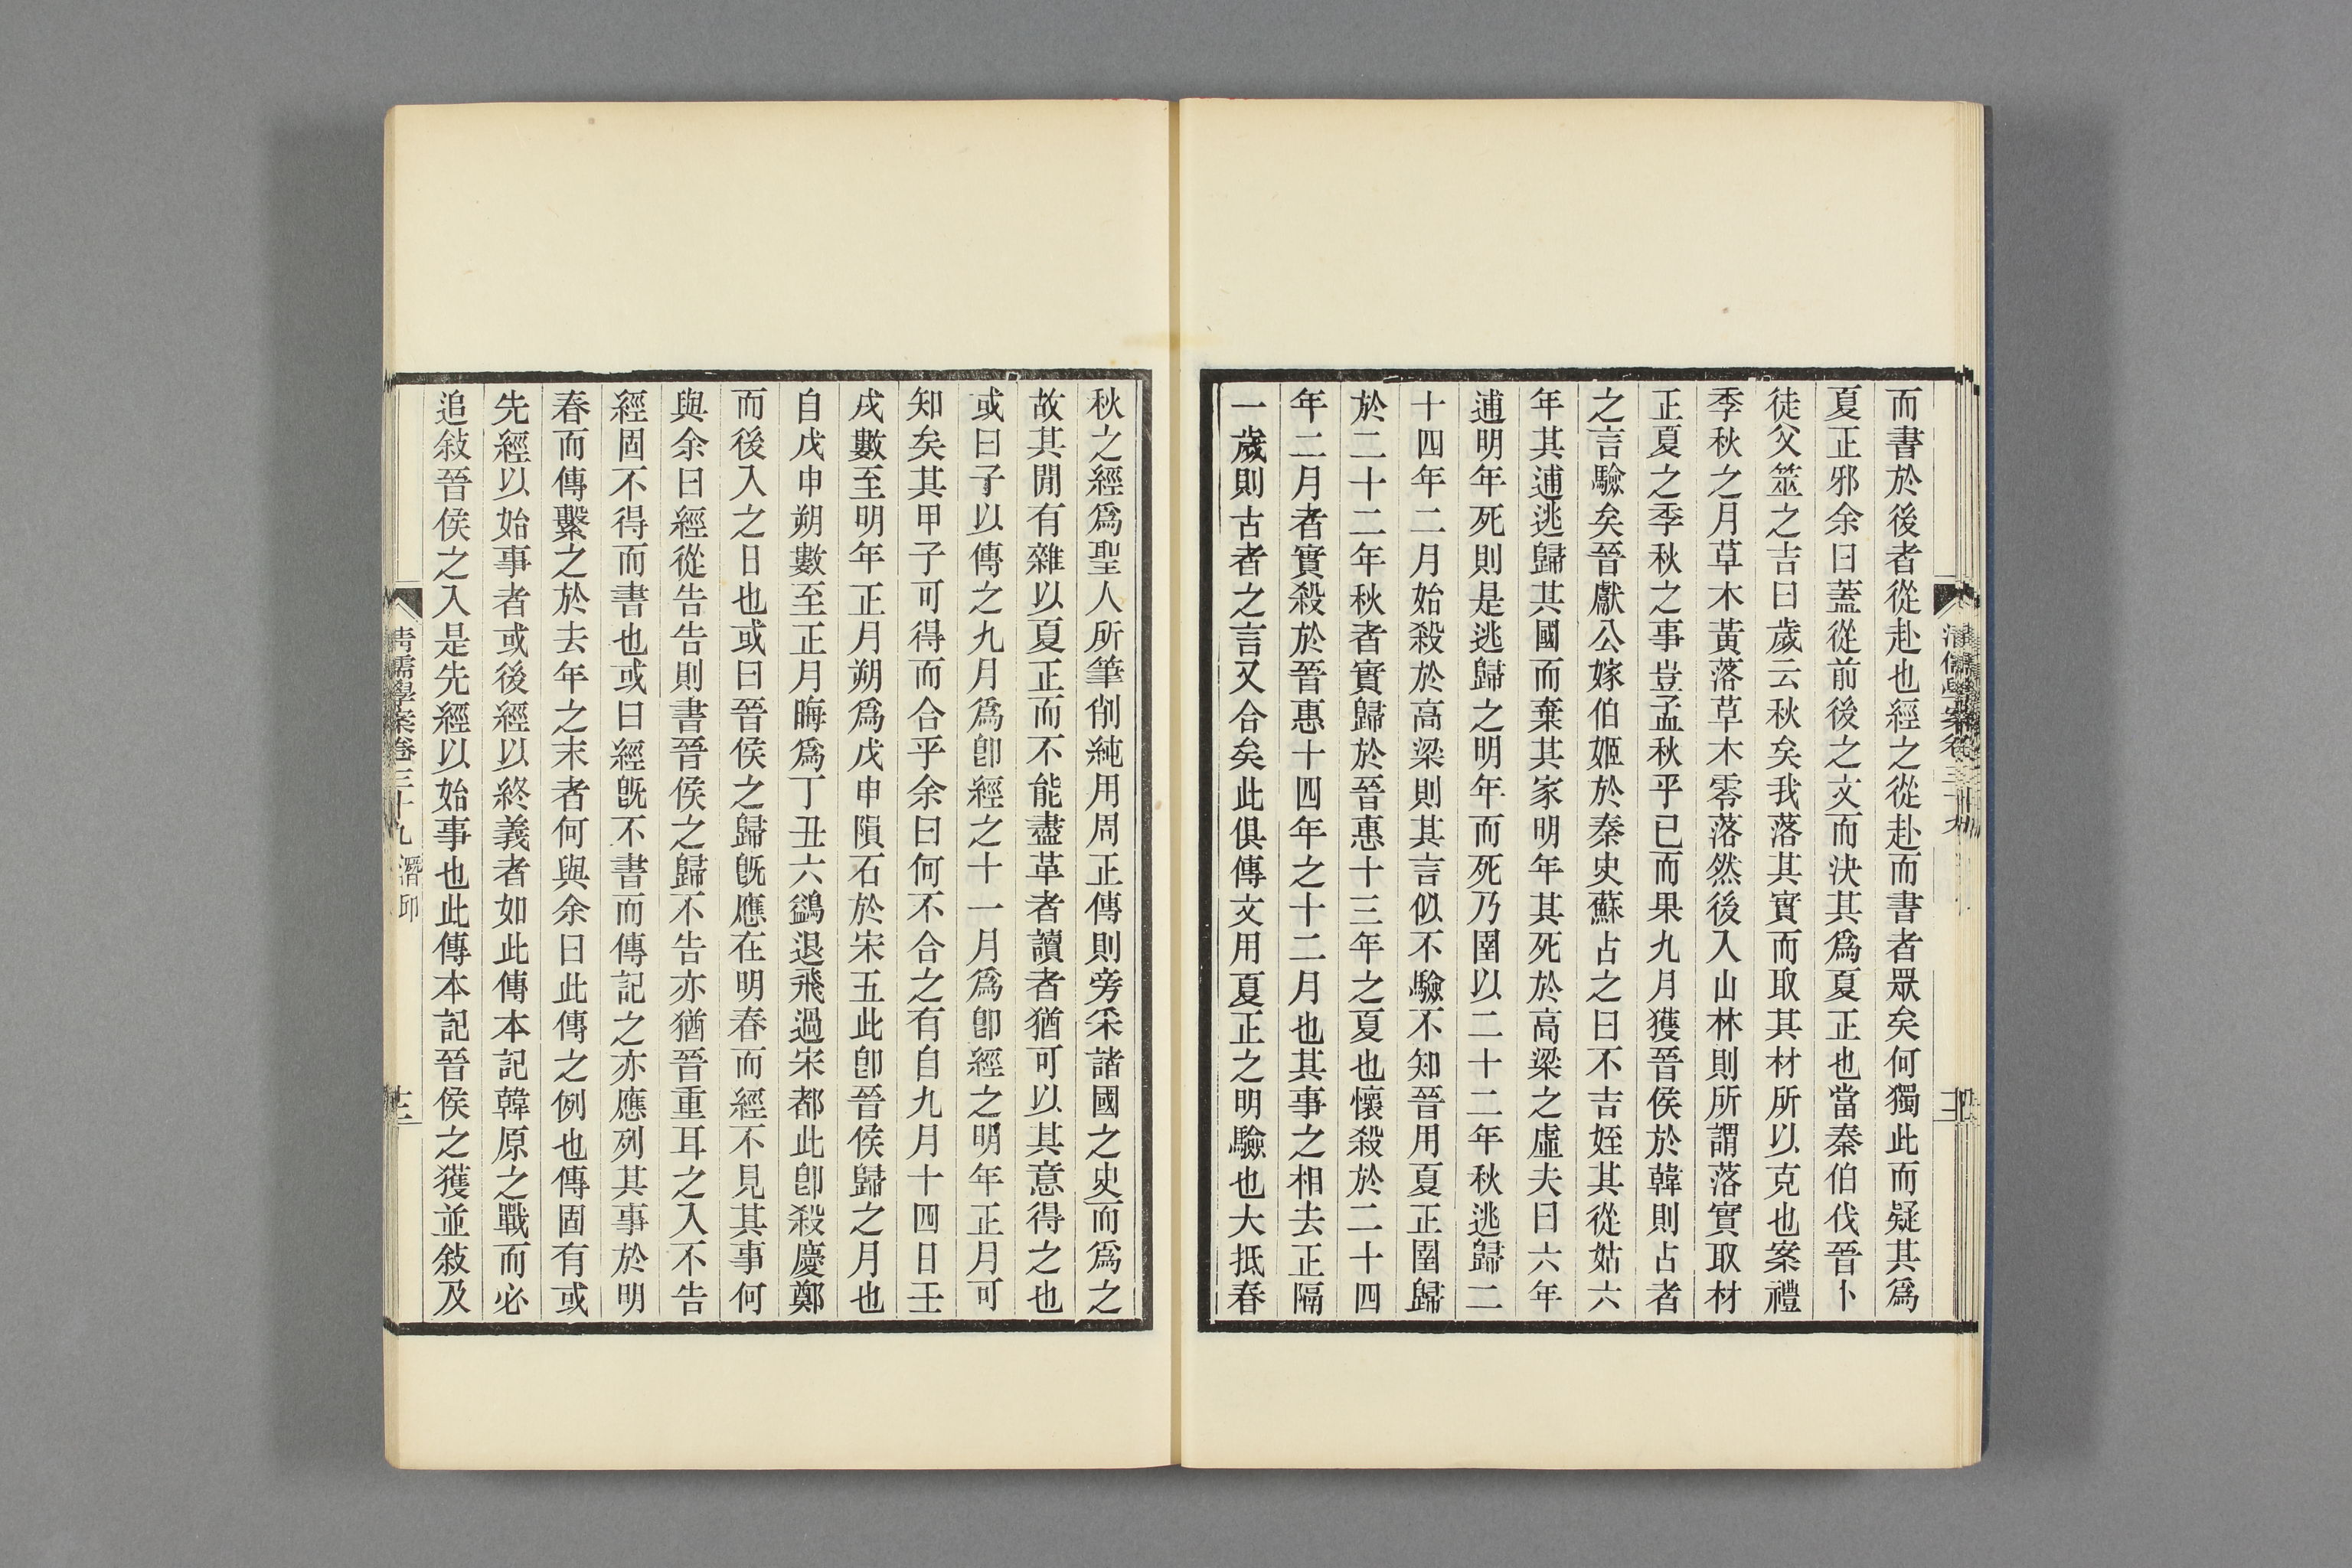 而書於後者從赴也經之從赴而書者眾矣何獨此而疑其爲
夏正邪余曰蓋從前後之文而決其爲夏正也當秦伯伐晉卜
徒父筮之吉曰歲云秋矣我落其實而取其材所以克也案禮
季秋之月草木黃落草木零落然後入山林則所謂落實取材
正夏之季秋之事豈孟秋乎已而果九月獲晉侯於韓則占者
之言驗矣晉獻公嫁伯姬於秦史蘇占之曰不吉姪其從姑六
年其逋逃歸其國而棄其家明年其死於高梁之虛夫曰六年
逋明年死則是逃歸之明年而死乃圉以二十二年秋逃歸二
十四年二月始殺於高梁則其言似不驗不知晉用夏正圉歸
於二十二年秋者實歸於晉惠十三年之夏也懷殺於二十四
年二月者實殺於晉惠十四年之十二月也其事之相去正隔
一歲則古者之言又合矣此俱傳文用夏正之明驗也大抵春
秋之經爲聖人所筆削純用周正傳則旁采諸國之史而爲之
故其閒有雜以夏正而不能盡革者讀者猶可以其意得之也
或曰子以傳之九月爲卽經之十一月爲卽經之明年正月可
知矣其甲子可得而合乎余曰何不合之有自九月十四日壬
戌數至明年正月朔爲戊申隕石於宋五此卽晉侯歸之月也
自戊申朔數至正月晦爲丁丑六鷁退飛過宋都此卽殺慶鄭
而後入之日也或曰晉侯之歸旣應在明春而經不見其事何
與余曰經從告告則書晉侯之歸不告亦猶晉重耳之入不告
經固不得而書也或曰經旣不書而傳記之亦應列其事於明
春而傳繫之於去年之末者何與余曰此傳之例也傳固有或
先經以始事者或後經以終義者如此傳本記韓原之戰而必
追敍晉侯之入是先經以始事也此傳本記晉侯之獲並敍及
清儒學案卷三十九 潛邱